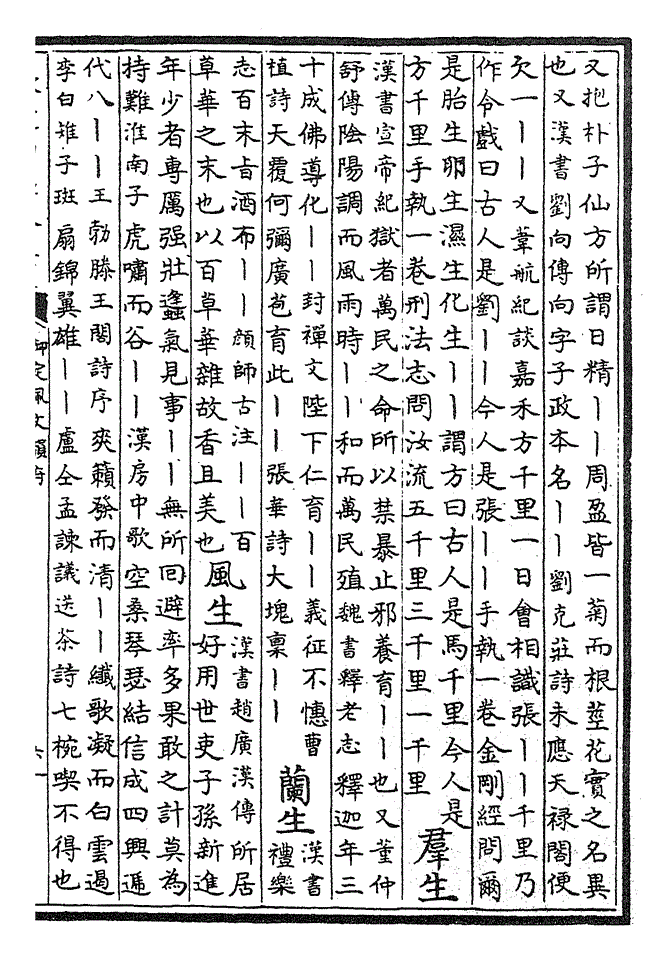 又抱朴子仙方所謂日精丨丨周盈皆一菊而根莖花實之名異
也又漢書劉向傳向字子政本名丨丨劉克莊詩未應天祿閣便
欠一丨丨又葦航紀談嘉禾方千里一日會相識張丨丨千里乃
作令戲曰古人是劉丨丨今人是張丨丨手執一卷金剛經問爾
是胎生卵生濕生化生丨丨謂方曰古人是馬千里今人是
方千里手執一卷刑法志問汝流五千里三千里一千里
羣生
漢書宣帝紀獄者萬民之命所以禁暴止邪養育丨丨也又董仲
舒傳陰陽調而風雨時丨丨和而萬民殖魏書釋老志釋迦年三
十成佛導化丨丨封禪文陛下仁育丨丨義征不憓曹
植詩天覆何彌廣苞育此丨丨張華詩大塊稟丨丨
蘭生
漢書
禮樂
志百末旨酒布丨丨顔師古注丨丨百
草華之末也以百草華雜故香且美也
風生
漢書趙廣漢傳所居
好用世吏子孫新進
年少者專厲强壯蠭氣見事丨丨無所回避率多果敢之計莫為
持難淮南子虎嘯而谷丨丨漢房中歌空桑琴瑟結信成四興遞
代八丨丨王勃滕王閣詩序爽籟發而清丨丨纖歌凝而白雲遏
李白雉子斑扇錦翼雄丨丨盧仝孟諫議送茶詩七椀喫不得也
御定佩文韻府